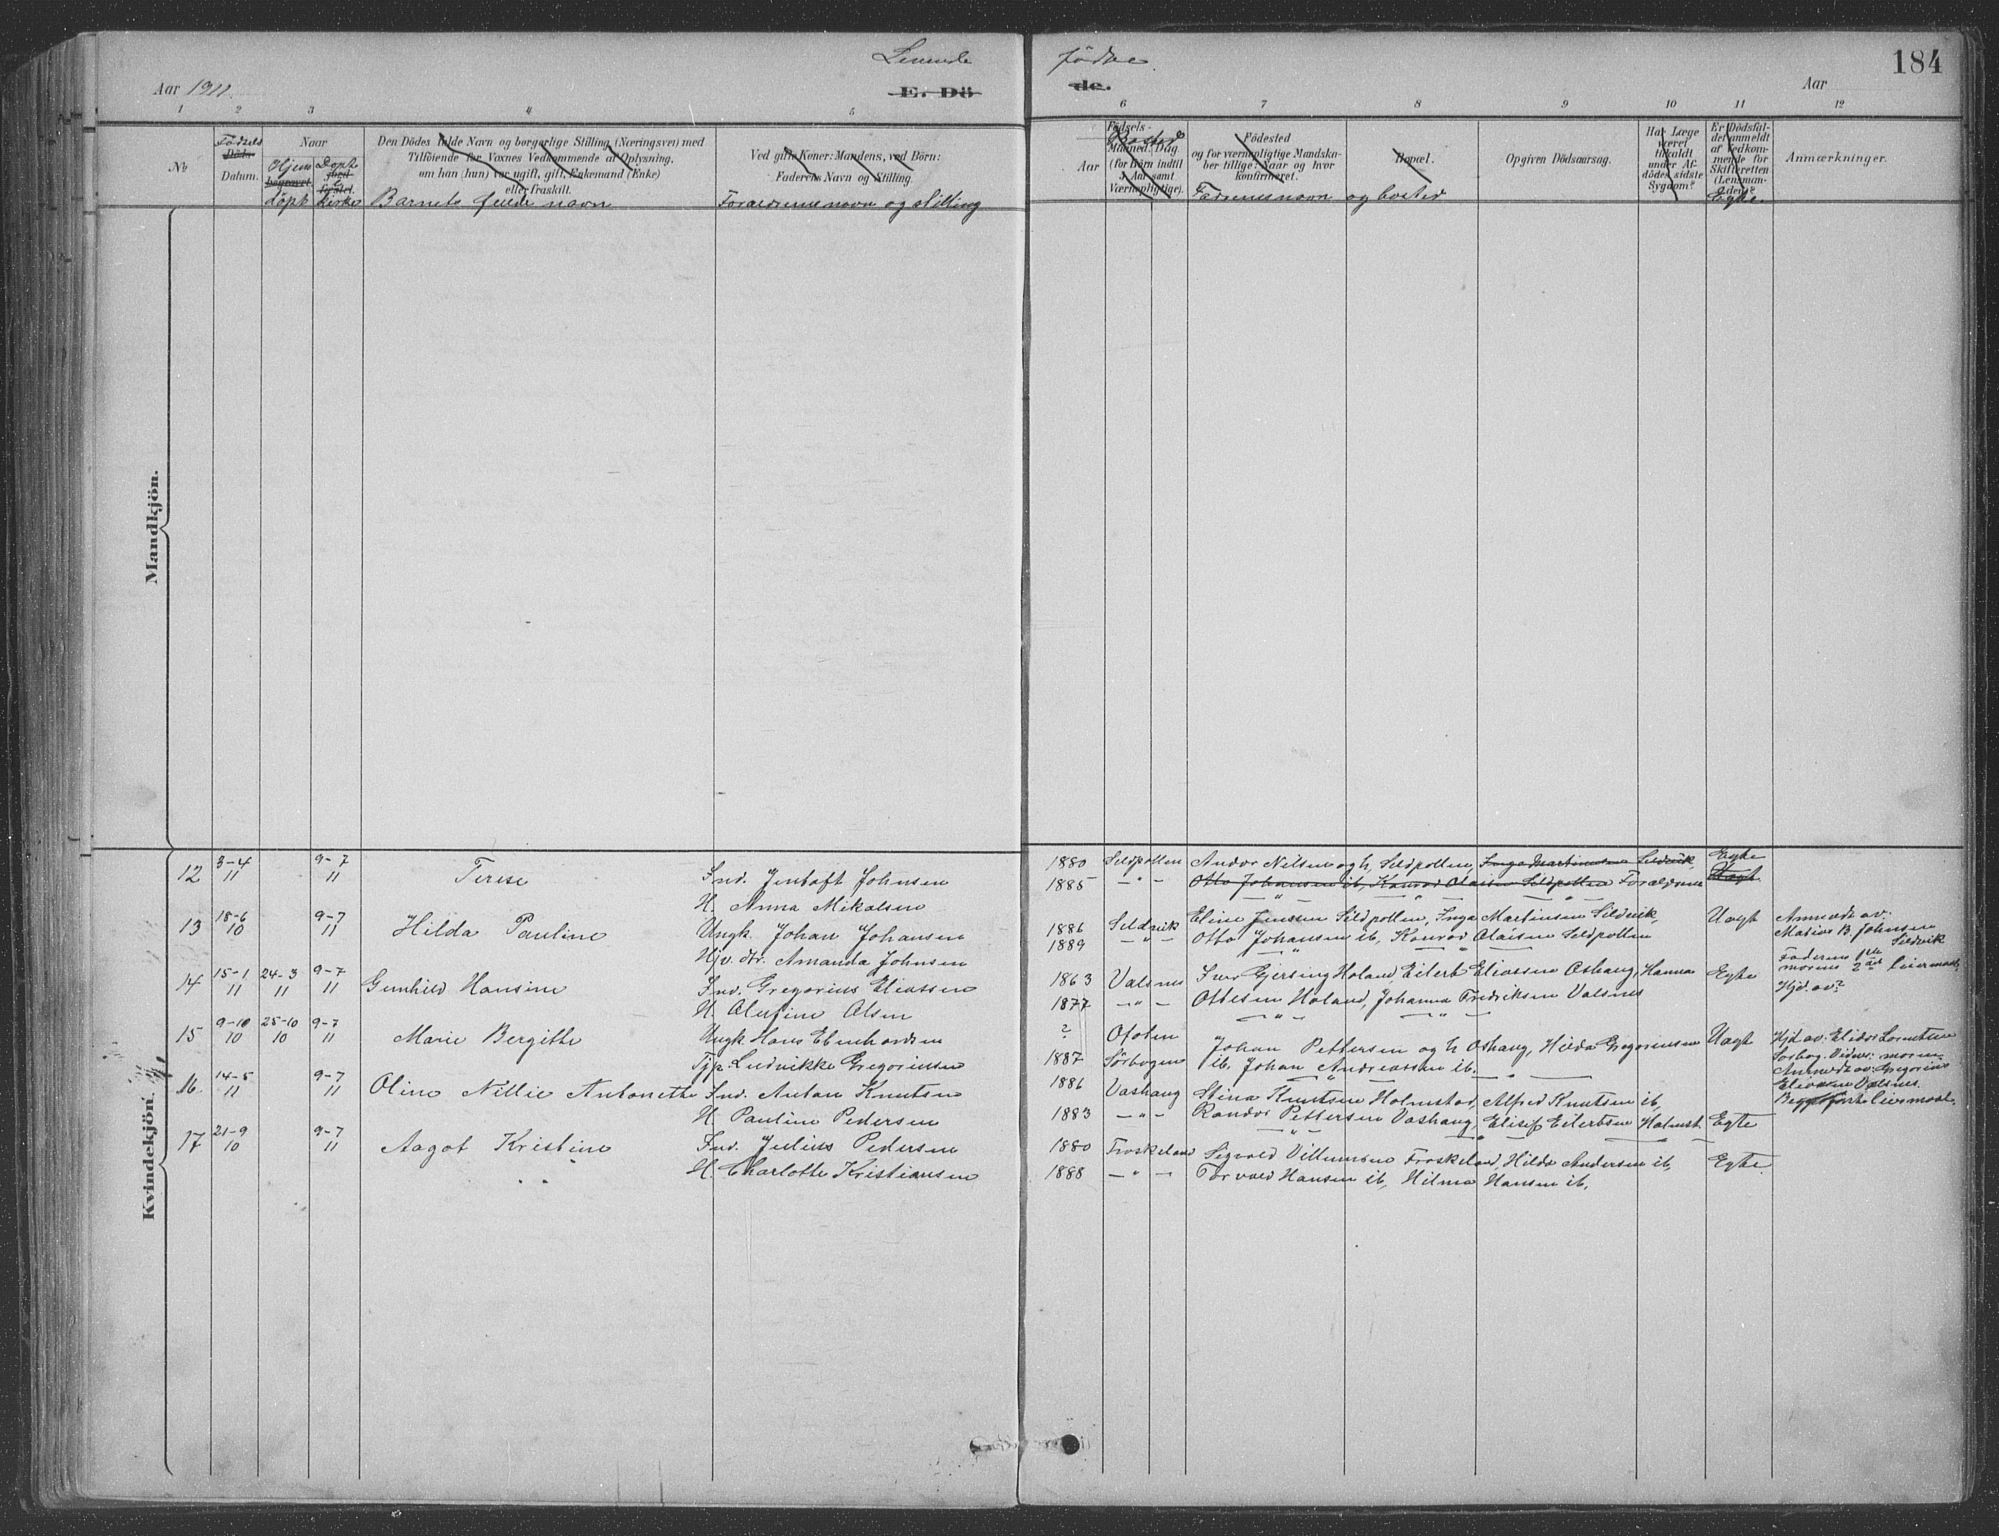 184
Levende fødte.
Aar 1911.
E. Dö de.
Aar
1 2 3 4 5 6 7 8 9 10 11 12
№
Fødsels
Döds-
Datum.
Naar
Hjem
begravet.
døpt
Døpt
Jord-
fæstet.
Kirke
Den Dödes fulde Navn og borgerlige Stilling (Næringsvei) med
Tilföiende for Voxnes Vedkommende af Oplysning,
om han (hun) var ugift, gift, Enkemand (Enke)
eller fraskilt.
Barnets fulde navn
Ved gifte Koner: Mandens, ved Börn:
Faderens Navn og Stilling.
Forældrenes navn og stilling
Fødsels-
Aar
Bosted
Maaned. Dag
(for börn indtil
5 Aar samt
Værnepligtige).
Födested
og for værnepligtige Mandska-
ber tillige: Naar og hvor
konfirmeret.
Faddernes navn og bosted
Bopæl.
Opgiven Dödsaarsag.
Har Læge
været
tilkaldt
under Af-
dödes sidste
Sygdom?
Er Dödsfal-
det anmeldt
af Vedkom-
mende for
Skifteretten
(Lensman-
den)?
Egte.
Anmærkninger.
Mandkjön.
Kvindekjön.
12 3-4 11 9-7 11 Terese Ind. Jentoft Johnsen 1880 Seldpollen Andor Nilsen og h. Seldpollen, Inga Martinsen Seldvik, Egte
H. Anna Mikalsen 1885 — " — Otto Johansen ib, Konrad Olaisen Seldpollen Forældrene Uægt.
13 18-6 10 9-7 11 Hilda Pauline Ungk. Johan Johansen 1886 Seldvik Eline Jenssen Seldpollen, Inga Martinsen Seldvik, Uægt Anmeldt av:
Hjv. dtr. Amanda Johnsen 1889 — " — Otto Johansen ib, Konrad Olaisen Seldpollen Matias B. Johnsen
Seldvik
Faderens 1ste
morens 2det leiermaal,
14 15-1 11 24-3 11 9-7 11 Gunhild Hansine Ind. Gregorius Eliassen 1863 Valsnes Ivar Gjersing Holand, Eilert Eliassen Oshaug, Hanna Egte Hjd. av?
H. Olufine Olsen 1877 — " — Ottesen Holand, Johanna Fredriksen Valsnes
15 9-10 10 25-10 10 9-7 11 Marie Bergitte Ungk Hans Ebenhardsen ? Ofoten Johan Pettersen og h Oshaug, Hilda Gregoriussen Uægt Hjd av: Elida Lorentsen
Tjp. Ludvikke Gregoriussen 1887 Sörbogen ib. Johan Andreassen ib. Sørbog. Vidne: moren
Anmeldt av: Gregorius
Eliassen Valsnes.
Begges første leiermaal.
16 14-5 11 9-7 11 Oline Nillie Antonette Ind. Anton Knutsen 1886 Vashaug Stina Knutsen Holmstad, Alfred Knutsen ib,
H. Pauline Pedersen 1883 — " — Randor Pettersen Vashaug, Elisef Eilertsen Holmst. Egte
17 21-9 10 9-7 11 Aagot Kristine Ind. Julius Pedersen 1880 Froskeland Sigvald Villumsen Froskeland, Hilda Andersen ib, Egte.
H. Charlotte Kristiansen 1888 — " — Torvald Hansen ib, Hilma Hansen ib,